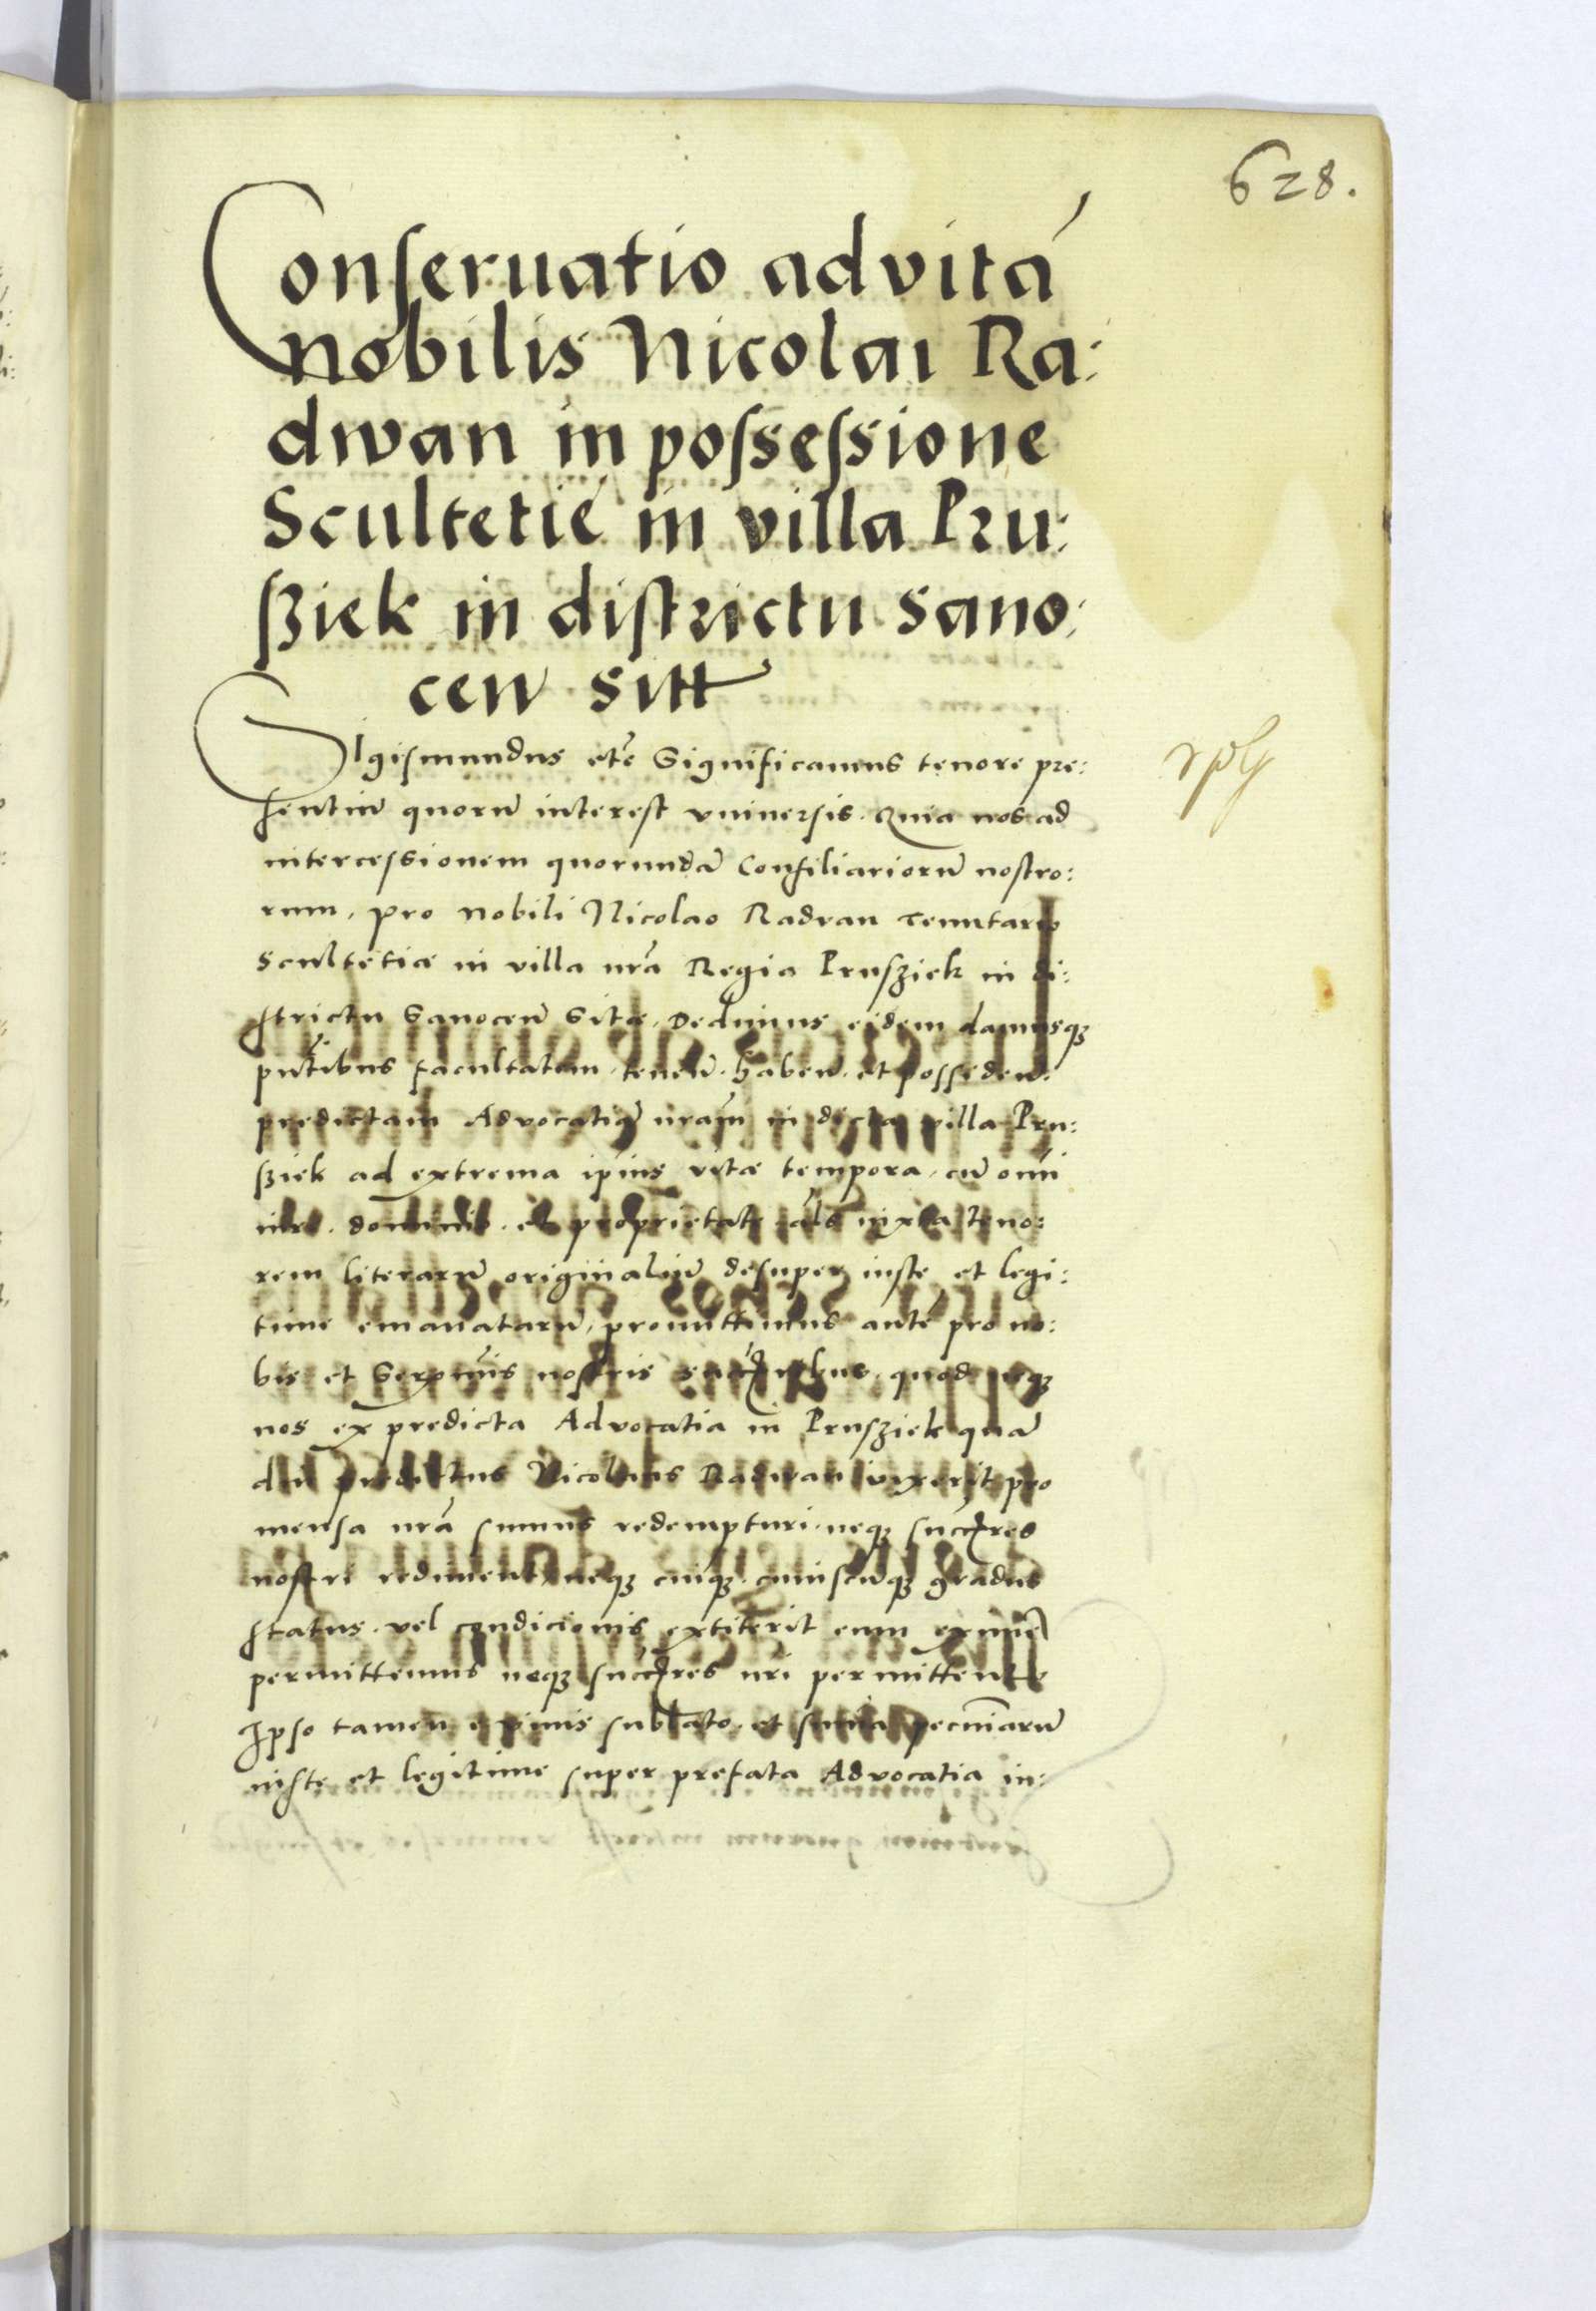 628.
Conseruatio ad vitā
nobilis Nicolai Ra:
dwan in possessione
Scultetie in villa Pru:
sziek in districtu Sano:
ceñ sitt
Sigismundus etc̄ Significamus tenore pre:
sentiū quorū interest vniuersis. Quia nos ad
intercessionem quorundā Consiliariorū nostro:
rum, pro nobili Nicolao Radvan Tenutario
Scultetiæ in villa nrā Regia Prusziek in di:
strictu Sanoceñ Sitæ, Dedimus eidem damusq;
pn̄tibus facultatem, teneñ. habeñ. et possideñ:
predictam Advocatiā nram̄ in dicta villa Pru:
sziek ad extrema ipīus vitæ tempora, cū omī
iure. dominio. et proprietate als̄ iuxta teno:
rem literarū originaliū desuper iuste et legi:
time emanatarū, promittimus ante pro no:
bis et Serp̄mis nostris succ̄ribus, quod neq;
nos ex predicta Advocatia in Prusziek quā
diu predictus Nicolaus Radwan vixerit pro
mensa nrā sumus redempturi, neq; succ̄res
nostri rediment, neq; cuiq;. cuiuscūq; gradus
status. vel condicionis extiterit eum eximē
permittemus neq; succ̄res nr̄i permittent
Ipso tamen e vivis sublato, et summa pecuniarū
iuste et legitime super prefata Advocatia in: